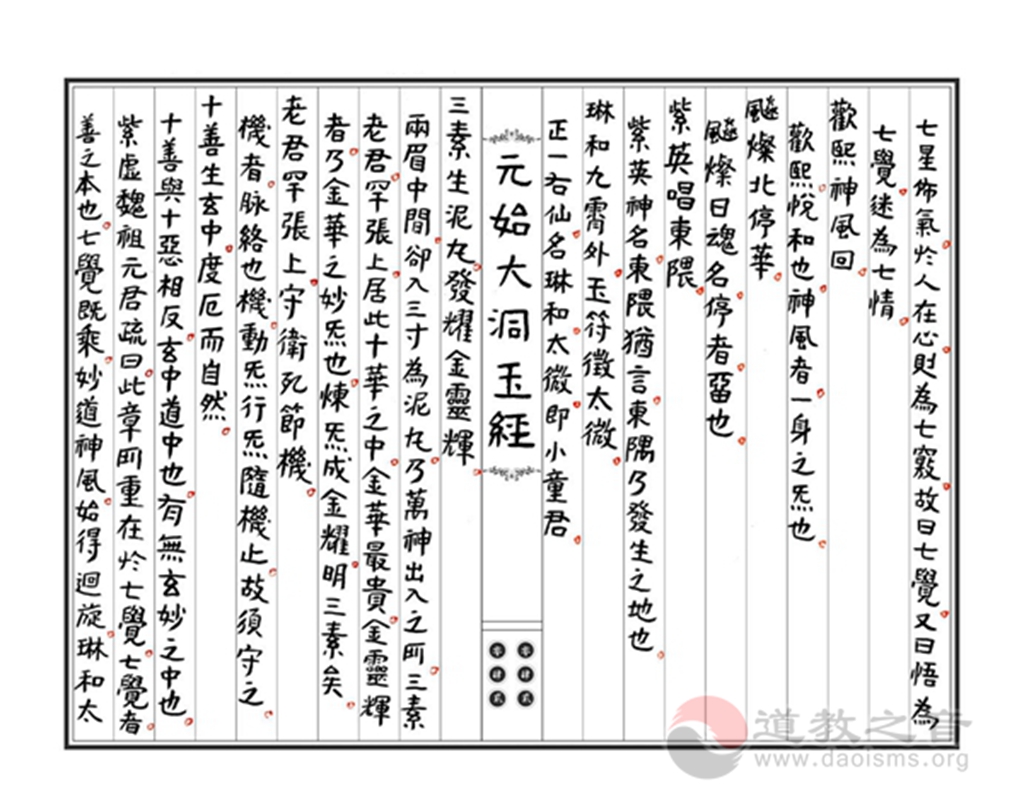 七星佈氣於人在心則為七竅故曰七覺又曰悟為
七覺迷為七情
歡熙神風回
歡熙悅和也神風者一身之炁也
飈燦北停華
飈燦日魂名停者畱也
紫英唱東隈
紫英神名東隈猶言東隅乃發生之地也
琳和九霄外玉符徵太微
正一右仙名琳和太微即小童君
元始大洞玉經
三素生泥丸發耀金靈輝
兩眉中間卻入三寸為泥丸乃萬神出入之所三素
老君罕張上居此十華之中金華最貴金靈輝
者乃金華之妙炁也煉炁成金耀明三素矣
老君罕張上守衛死節機
機者脉絡也機動炁行炁隨機止故須守之
十善生玄中度厄而自然
十善與十惡相反玄中道中也有無玄妙之中也
紫虛魏祖元君疏曰此章所重在於七覺七覺者
善之本也七覺既乘妙道神風始得迴旋琳和太
道教之音
www.daoisms.org